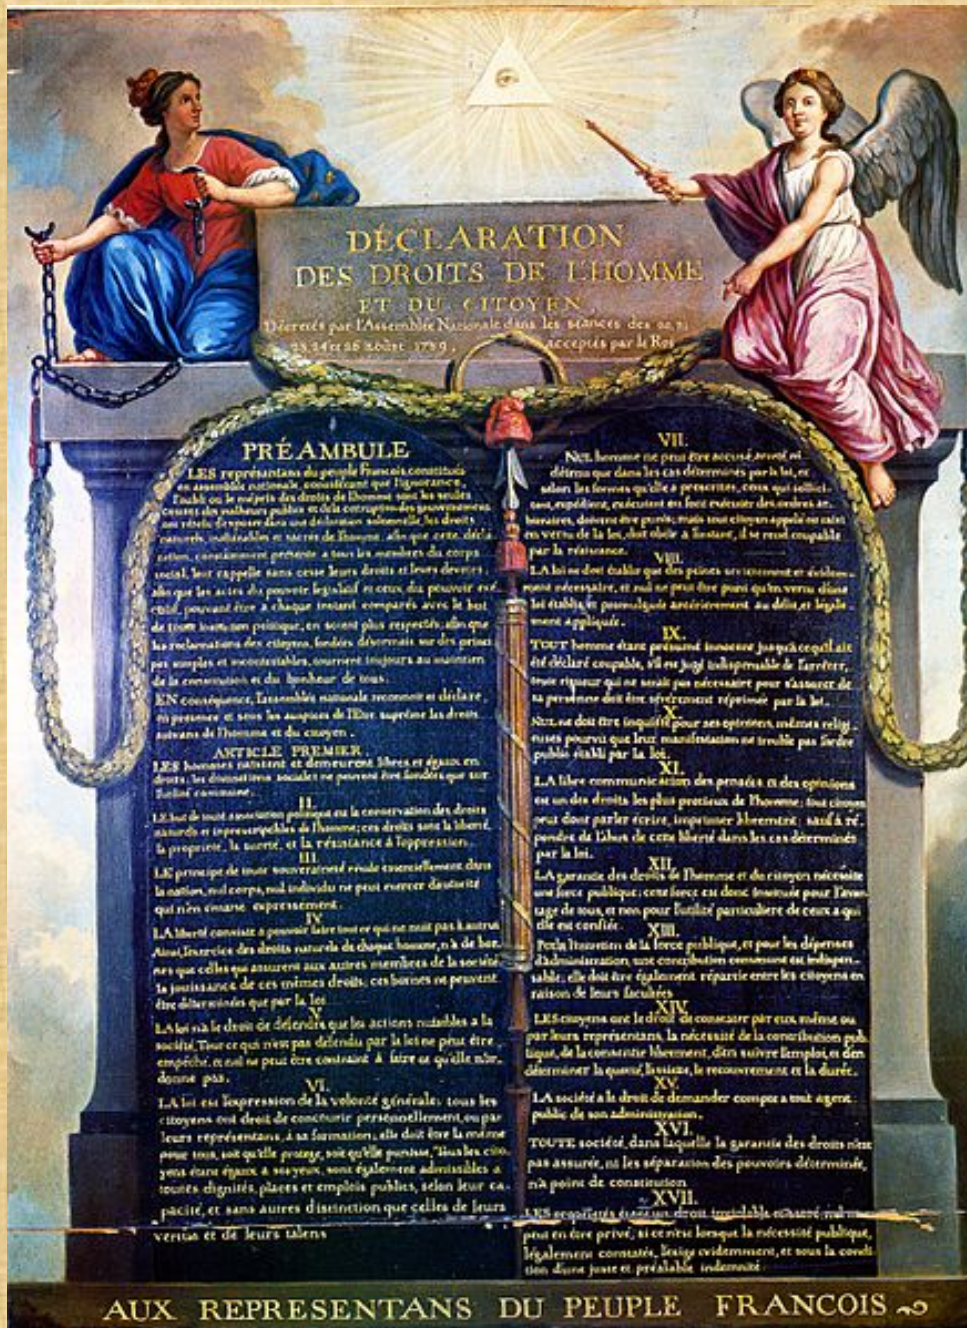 DÉCLARATION
DES DROITS DE L'HOMME
ET DU CITOYEN,
Décretés par l'Assemblée Nationale dans les séances des 20, 21
23, 24 et 26 aoûst 1789, acceptés par le Roi
PRÉAMBULE
LES représentans du peuple François, constitués
en assemblée nationale, considérant que l'ignorance,
l'oubli ou le mépris des droits de l'homme sont les seules
causes des malheurs publics et de la corruption des gouvernemens
ont résolu d'exposer dans une déclaration solemnelle, les droits
naturels, inaliénables et sacrés de l'homme; afin que cette décla
ration, constamment présente a tous les membres du corps
social, leur rappelle sans cesse leurs droits et leurs devoirs,
afin que les actes du pouvoir legislatif et ceux du pouvoir ex
écutif, pouvant être a chaque instant comparés avec le but
de toute institution politique, en soient plus respectés; afin que
les reclamations des citoyens, fondées désormais sur des princi
pes simples et incontestables, tournent toujours au maintien
de la constitution et du bonheur de tous.
EN conséquence, l'assemblée nationale reconnoit et déclare,
en presence et sous les auspices de l'Etre suprême les droits
suivans de l'homme et du citoyen.
ARTICLE PREMIER.
LES hommes naissent et demeurent libres et égaux en
droits; les distinctions sociales ne peuvent être fondées que sur
l'utilité commune.
II.
LE but de toute association politique est la conservation des droits
naturels et imprescriptibles de l'homme; ces droits sont la liberté,
la propriété, la sureté, et la résistance à l'oppression.
III.
LE principe de toute souveraineté réside essentiellement dans
la nation, nul corps, nul individu ne peut exercer d'autorité
qui n'en émane expressement.
IV.
LA liberté consiste a pouvoir faire tout ce qui ne nuit pas à autrui
Ainsi, l'exercice des droits naturels de chaque homme, n'a de bor-
nes que celles qui assurent aux autres membres de la société
la jouissance de ces mêmes droits; ces bornes ne peuvent
être déterminées que par la loi
V.
LA loi n'a le droit de défendre que les actions nuisibles a la
société. Tout ce qui n'est pas défendu par la loi ne peut être
empêché, et nul ne peut être contraint à faire ce qu'elle n'or-
donne pas.
VI.
LA loi est l'expression de la volonté générale; tous les
citoyens ont droit de concourir personnellement, ou par
leurs représentans, à sa formation; elle doit être la même
pour tous, soit qu'elle protege, soit qu'elle punisse, Tous les cito
yens étant égaux à ses yeux, sont également admissibles a
toutes dignités, places et emplois publics, selon leur ca-
pacité, et sans autres distinction que celles de leurs
vertus et de leurs talens
VII.
NUL homme ne peut être accusé, arreté, ni
détenu que dans les cas déterminés par la loi, et
selon les formes qu'elle a prescrites, ceux qui sollici-
tent, expédient, exécutent ou font exécuter des ordres ar-
bitraires, doivent être punis; mais tout citoyen appelé ou saisi
en vertu de la loi, doit obéir a l'instant, il se rend coupable
par la résistance.
VIII.
LA loi ne doit établir que des peines strictement et évidem-
ment nécessaire, et nul ne peut être puni qu'en vertu d'une
loi établie et promulguée antérieurement au délit, et légale
ment appliquée.
IX.
TOUT homme étant présumé innocent jusqu'à ce qu'il ait
été déclaré coupable, s'il est jugé indispensable de l'arrêter,
toute rigueur qui ne serait pas nécessaire pour s'assurer de
sa personne doit être sévèrement réprimée par la loi.
X.
NUL ne doit être inquiété pour ses opinions, mêmes religi
euses pourvu que leur manifestation ne trouble pas l'ordre
public établi par la loi.
XI.
LA libre communication des pensées et des opinions
est un des droits les plus precieux de l'homme; tout citoyen
peut donc parler écrire, imprimer librement; sauf à ré
pondre de l'abus de cette liberté dans les cas déterminés
par la loi.
XII.
LA garantie des droits de l'homme et du citoyen nécessite
une force publique; cette force est donc instituée pour l'avan-
tage de tous, et non pour l'utilité particuliere de ceux a qui
elle est confiée.
XIII.
POUR l'entretien de la force publique, et pour les dépenses
d'administration, une contribution commune est indispen-
sable; elle doit être également répartie entre les citoyens en
raison de leurs facultées
XIV.
LES citoyens ont le droit de constater par eux même ou
par leurs représentans, la nécessité de la contribution pub-
lique, de la consentir librement, d'en suivre l'emploi, et d'en
déterminer la quotité, l'assiette, le recouvrement et la durée.
XV.
LA société a le droit de demander compte a tout agent
public de son administration.
XVI.
TOUTE société, dans laquelle la garantie des droits n'est
pas assurée, ni les séparation des pouvoirs déterminée,
n'a point de constitution
XVII.
LES propriétés étant un droit inviolable et sacré, nul ne
peut en être privé, si ce n'est lorsque la nécessité publique,
légalement constatée, l'exige evidemment, et sous la condi
tion d'une juste et préalable indemnité.
AUX REPRESENTANS DU PEUPLE FRANCOIS